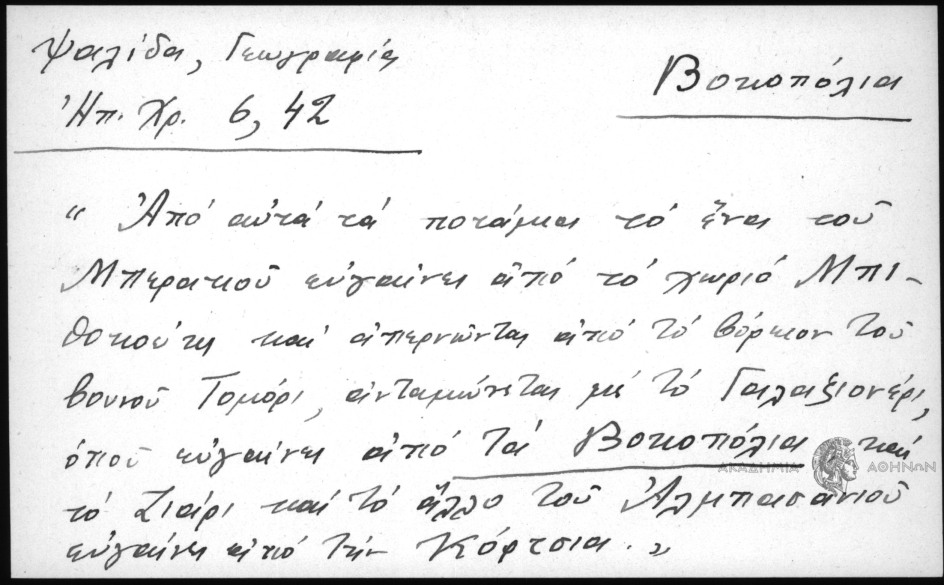 Ψαλίδα, Γεωγραφία
Βοκοπόλια
Ἠπ. Χρ. 6, 42
“ Ἀπό αὐτά τά ποτάμια τό ἕνα τοῦ
Μπερατιοῦ εὐγαίνει ἀπό τό χωριό Μπι-
θοκούτι καί ἀπερνῶντας ἀπό τό βόρειον τοῦ
βουνοῦ Τομόρι, ἀνταμώνεται μέ τό Γαλαξιονέρι,
ὁποῦ εὐγαίνει ἀπό τά Βοκοπόλια καί
τό Σιάρι καί τό ἄλλο τοῦ Ἀλμπασανιοῦ
εὐγαίνει ἀπό τήν Κόρτσια. ”
ΑΚΑΔΗΜΙΑ ΑΘΗΝΩΝ